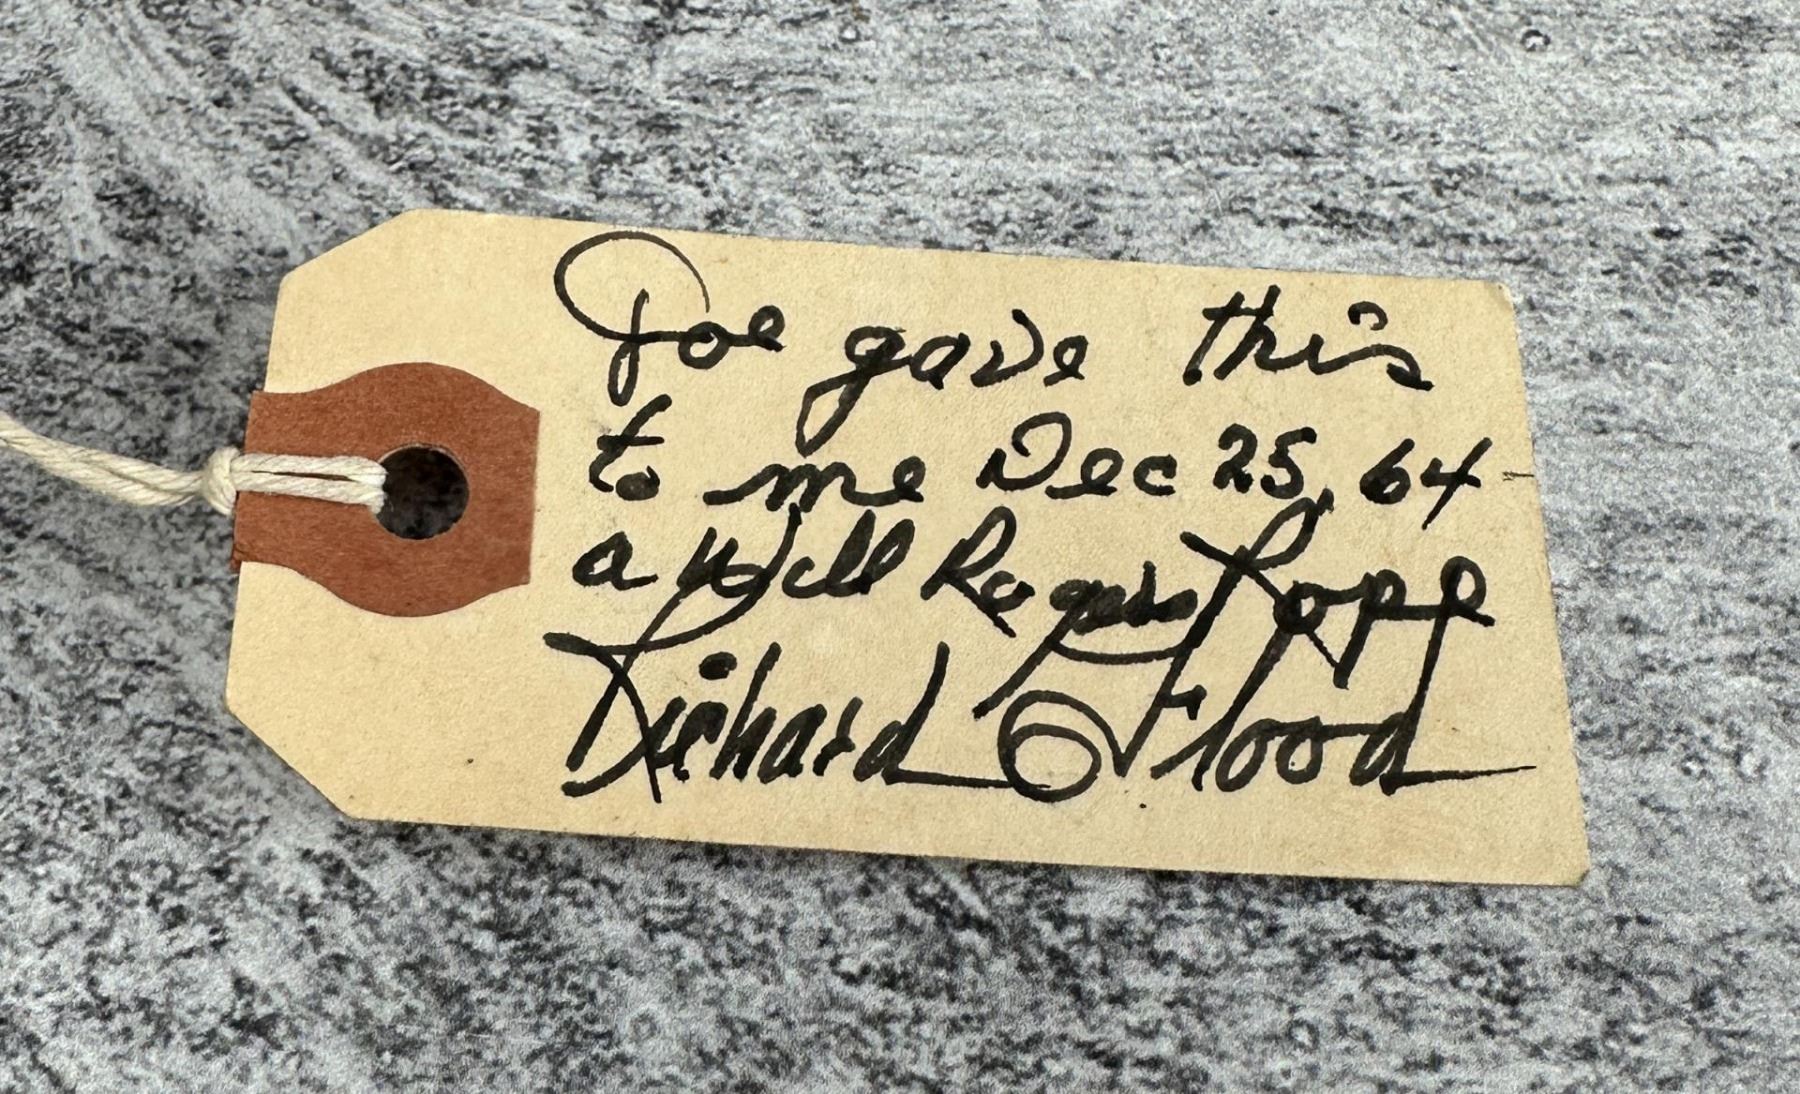 Joe gave this
to me Dec 25, 64
a Will Rogers Rope
Richard Flood